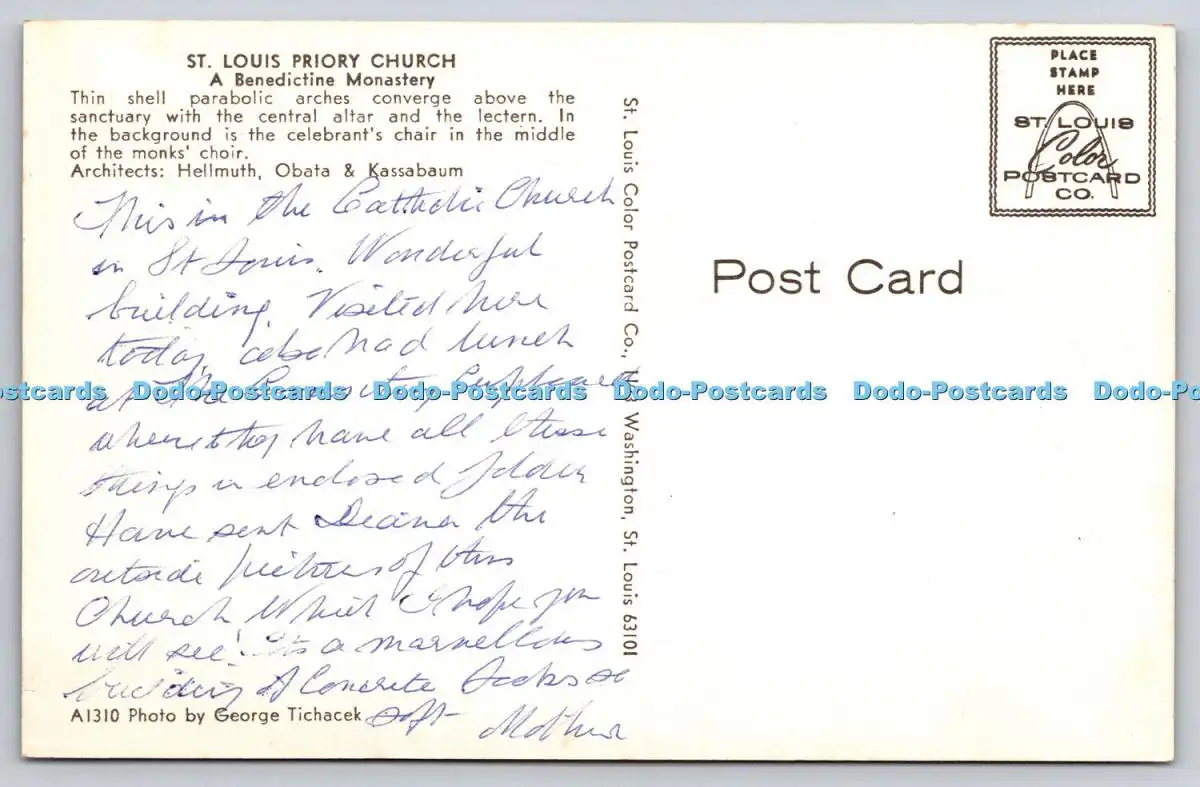 ST. LOUIS PRIORY CHURCH
A Benedictine Monastery
Thin shell parabolic arches converge above the
sanctuary with the central altar and the lectern. In
the background is the celebrant's chair in the middle
of the monks' choir.
Architects: Hellmuth, Obata & Kassabaum
This in the Catholic Church
in St Louis. Wonderful
building. Visited here
today, also had lunch
at The Cupboard
where they have all these
things in enclosed folder
Have sent Deana the
outside pictures of this
Church Which I hope you
will see! Its a marvellous
building of Concrete Looks so
soft Mother
A1310 Photo by George Tichacek
St. Louis Color Postcard Co., Washington, St. Louis 63101
PLACE
STAMP
HERE
ST. LOUIS
Color
POSTCARD
CO.
Post Card
Dodo-Postcards Dodo-Postcards Dodo-Postcards Dodo-Postcards